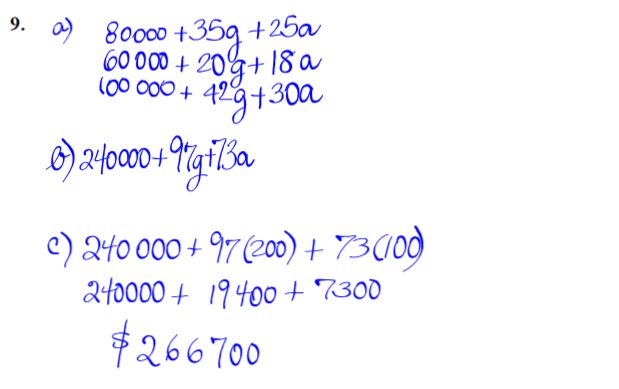 9. a) 80000 + 35g + 25a
60 000 + 20g + 18a
100 000 + 42g + 30a
b) 240000 + 97g + 73a
c) 240 000 + 97(200) + 73(100)
240000 + 19400 + 7300
$266700